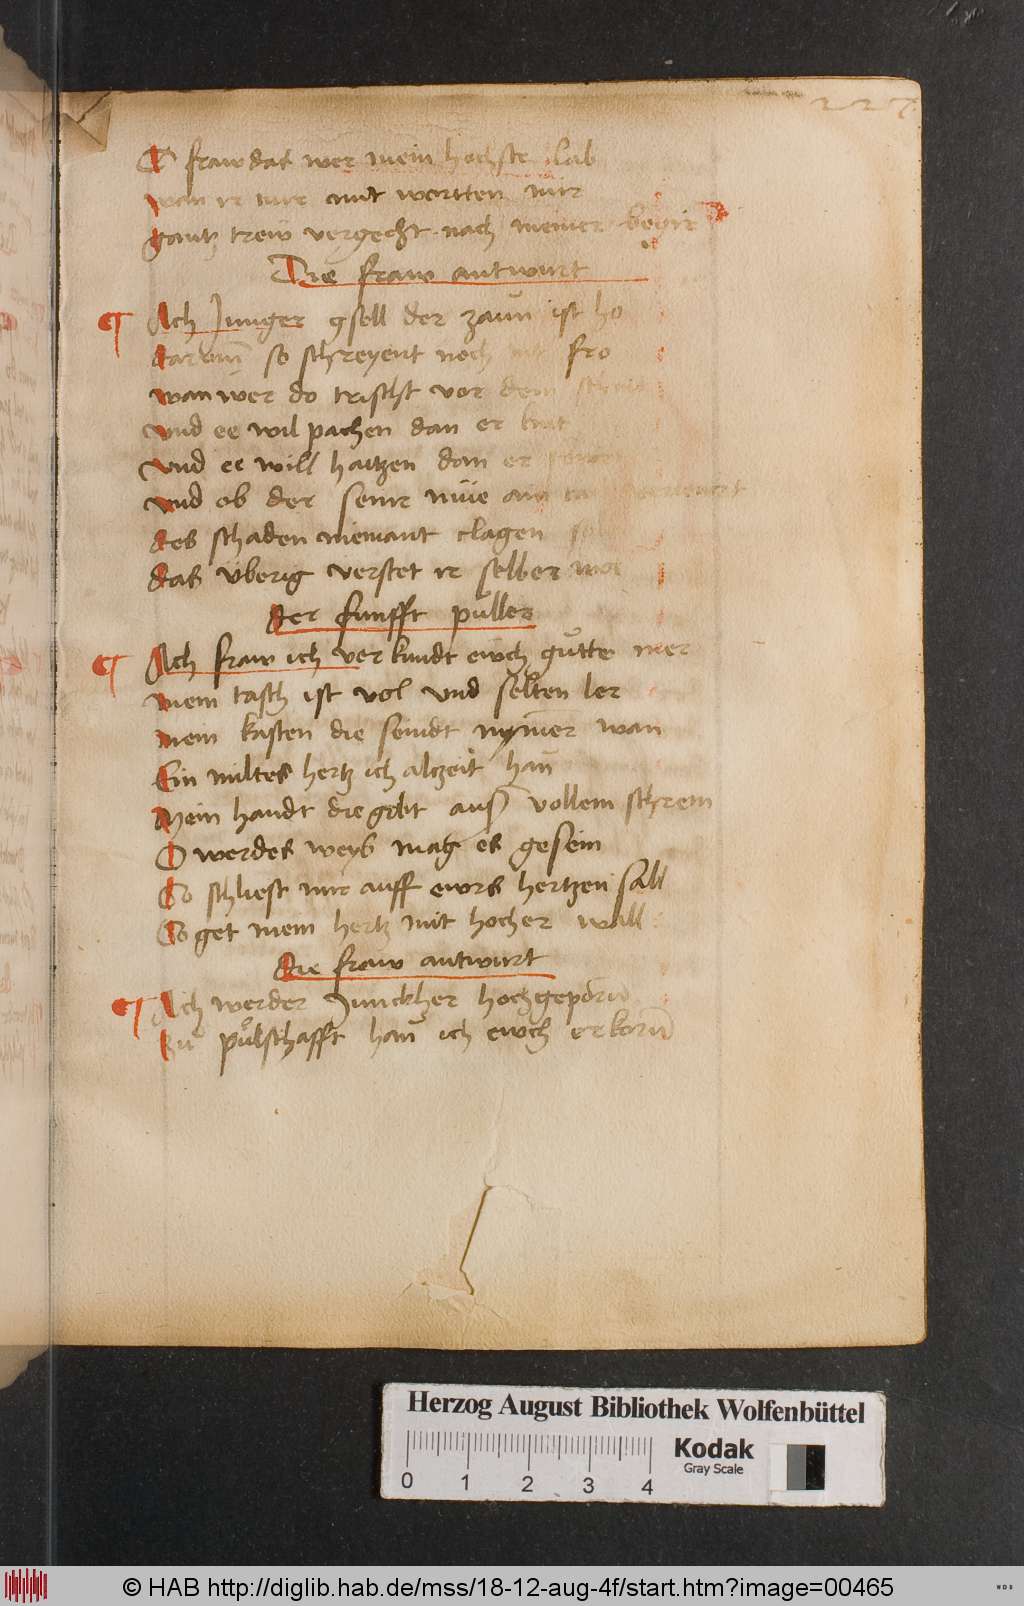 227
O fraw das wer mein hochste lab
wan ir mir mit wortten mir
gantz trew vergecht nach meiner begir
Die fraw antwurt
Ach Junger gsell der zaun ist ho
darumb so schreyent noch nit fro
wan wer do trischt vor dem
vnd ee wil pachen dan er knit
vnd ee will haitzen dan er
vnd ob der seine müe ain
des schaden niemant clagen sol
das überig verstet ir selber wol
der funfft puller
Ach fraw ich verkundt ewch gutte mer
mein tasch ist vol vnd selten ler
mein kasten die seindt nymer wan
Ein miltes hertz ich alzeit han
Mein handt die gebt aus vollem schrein
O werdes weyb mag es gesein
So schliest mir auff ewrs hertzen sall
So get mein hertz mit hocher wall
die fraw antwurt
Ach werder Junckher hochgeporn
zu pulschafft han ich ewch erkorn
Herzog August Bibliothek Wolfenbüttel
Kodak
Gray Scale
0 1 2 3 4
© HAB http://diglib.hab.de/mss/18-12-aug-4f/start.htm?image=00465